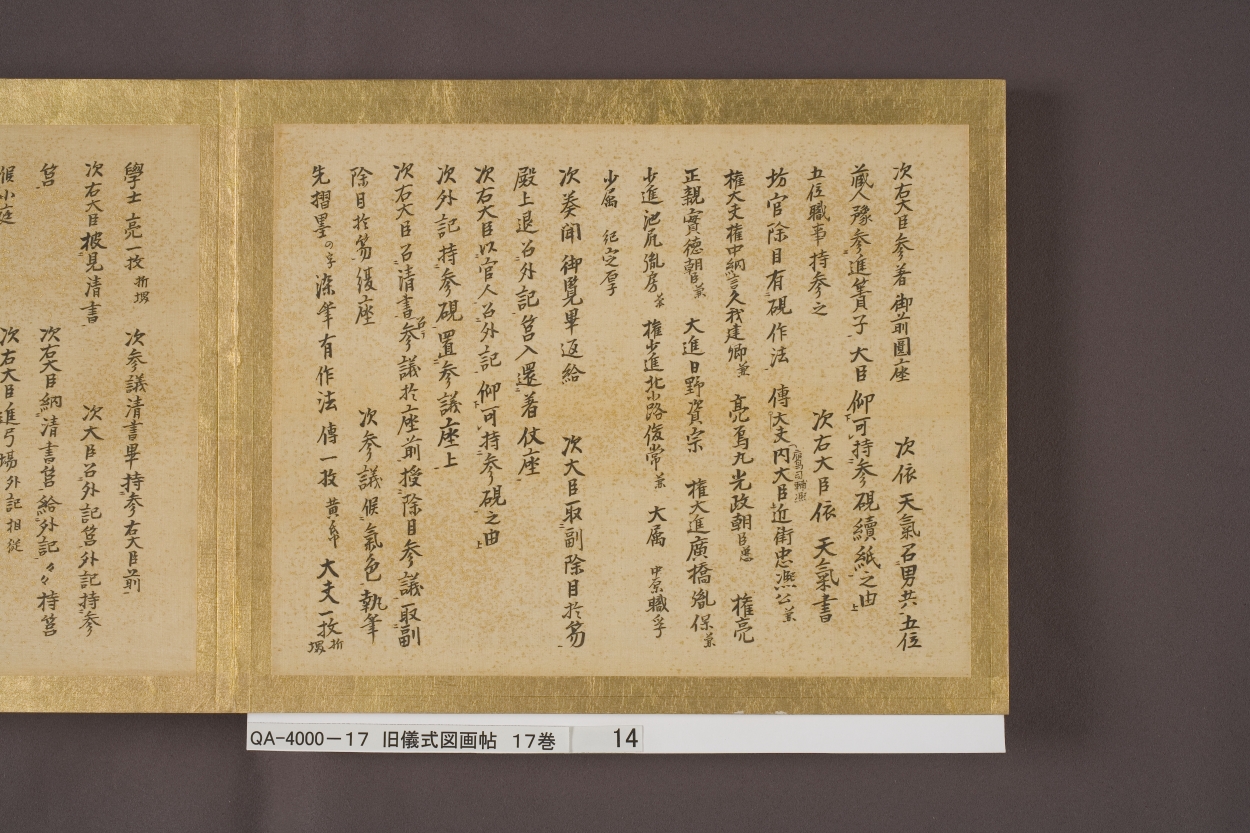 次右大臣参着 御前圓座　次依 天氣召男共 五位
蔵人豫参進簀子 大臣仰可持参硯續紙之由
五位職事持参之　次右大臣依 天氣書
坊官除目有硯作法 傳大夫内大臣近衛忠凞公兼
權大夫權中納言久我建卿兼 亮烏丸光政朝臣 權亮
正親實德朝臣兼 大進日野資宗 權大進廣橋胤保兼
少進池尻胤房兼 權少進北小路俊常兼 大属 中原職孚
少属 紀定厚
次奏聞 御覧畢返給　次大臣取副除目於笏
殿上退召外記筥入還着仗座
次右大臣以官人召外記仰可持参硯之由
次外記持参硯置参議座上
次右大臣召清書参議於座前授除目参議取副
除目於笏復座　次参議候氣色執筆
先摺墨 染筆有作法 傳一枚 黄紙 大夫一枚 折堺
學士 亮一枚 折堺　次参議清書畢持参右大臣前
次右大臣披見清書　次大臣召外記筥外記持参
筥　次右大臣納清書筥給外記々々持筥
候小庭　次右大臣進弓場外記相従
QA-4000-17 旧儀式図画帖 17巻 14